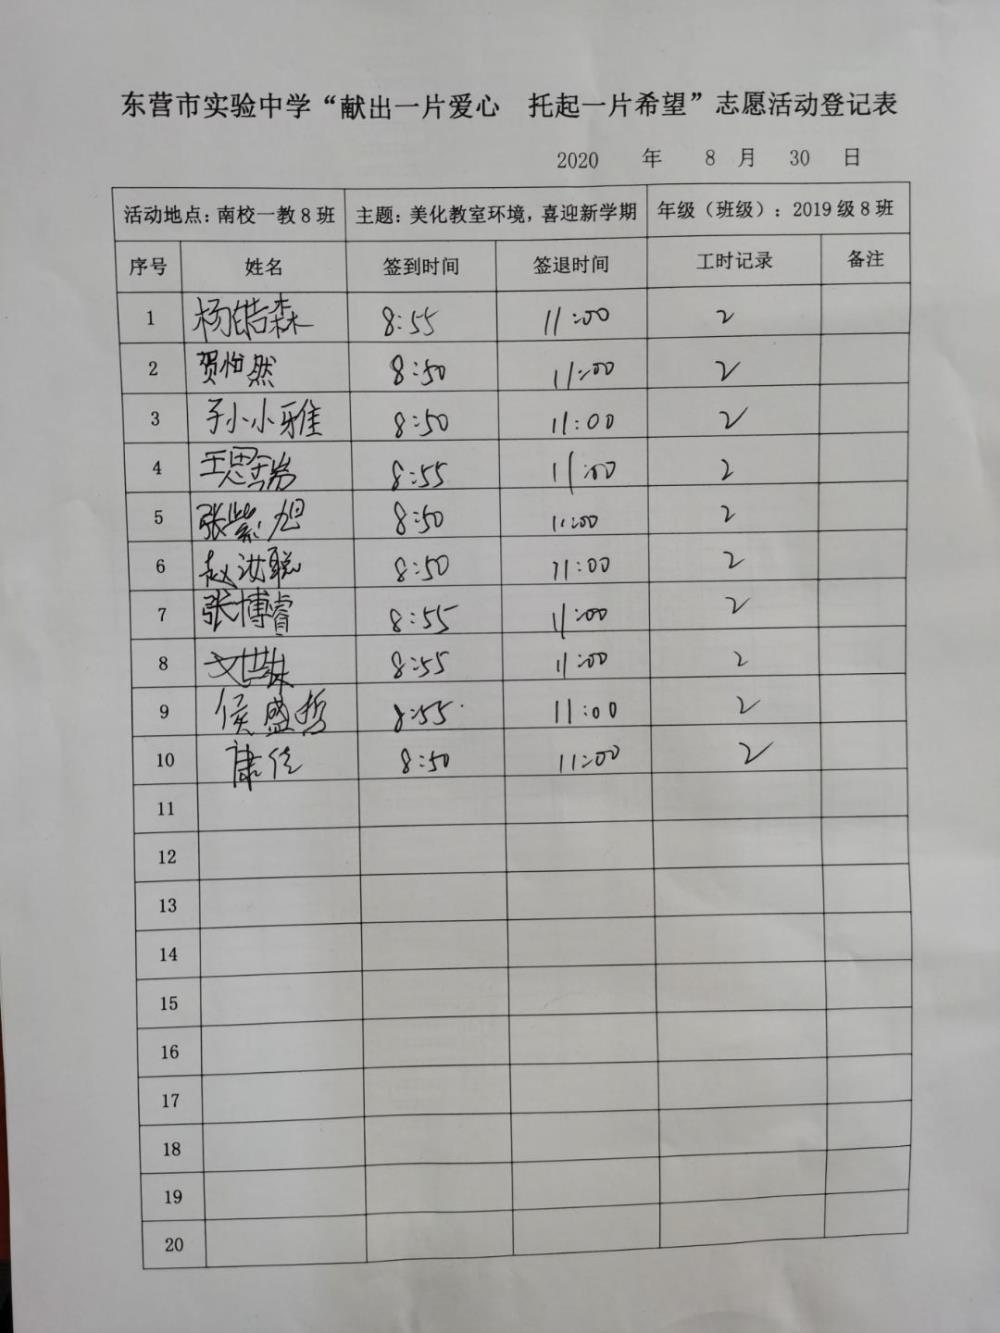 东营市实验中学“献出一片爱心 托起一片希望”志愿活动登记表
2020 年 8 月 30 日
活动地点：南校一教8班 主题：美化教室环境，喜迎新学期 年级（班级）：2019级8班
序号 姓名 签到时间 签退时间 工时记录 备注
1 杨皓森 8:55 11:00 2
2 贺怡然 8:50 11:00 2
3 孙小雅 8:50 11:00 2
4 王思 8:55 11:00 2
5 张紫旭 8:50 11:00 2
6 赵 聪 8:50 11:00 2
7 张博睿 8:55 11:00 2
8 8:55 11:00 2
9 侯盛哲 8:55 11:00 2
10 康 8:50 11:00 2
11
12
13
14
15
16
17
18
19
20